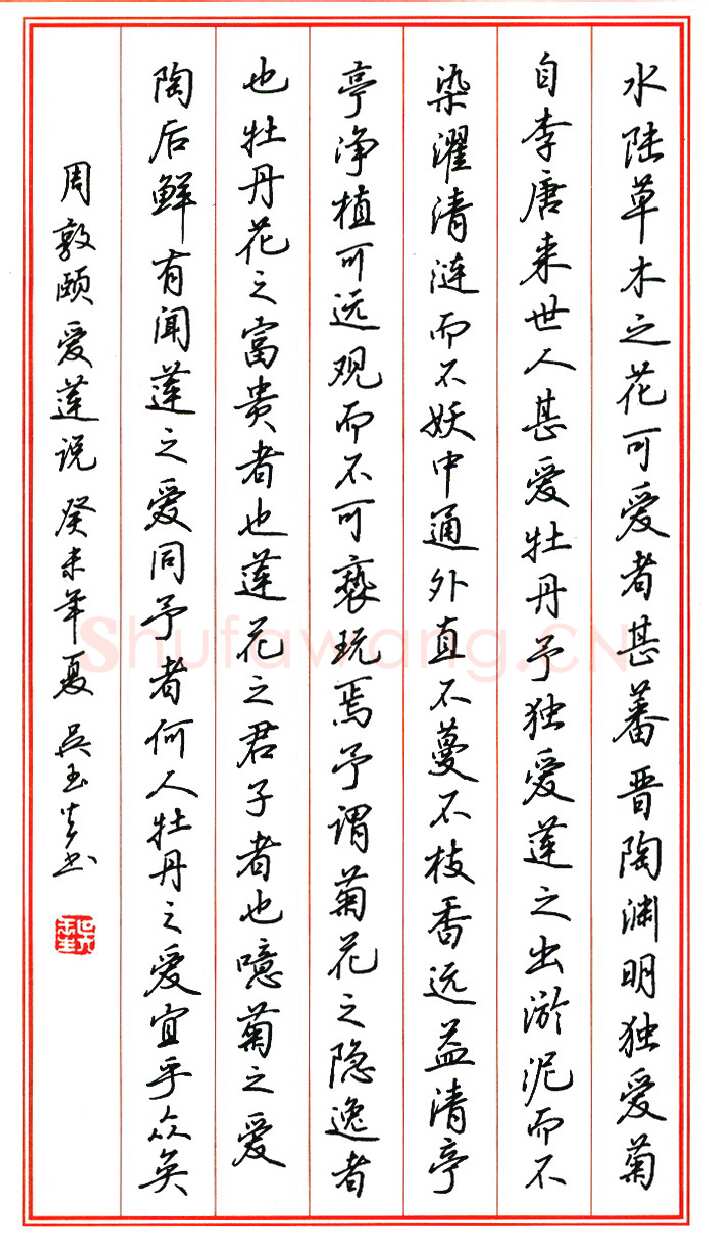 水陆草木之花可爱者甚蕃晋陶渊明独爱菊
自李唐来世人甚爱牡丹予独爱莲之出淤泥而不
染濯清涟而不妖中通外直不蔓不枝香远益清亭
亭净植可远观而不可亵玩焉予谓菊花之隐逸者
也牡丹花之富贵者也莲花之君子者也噫菊之爱
陶后鲜有闻莲之爱同予者何人牡丹之爱宜乎众矣
周敦颐爱莲说 癸未年夏 吴玉生书
Shufawang.CN